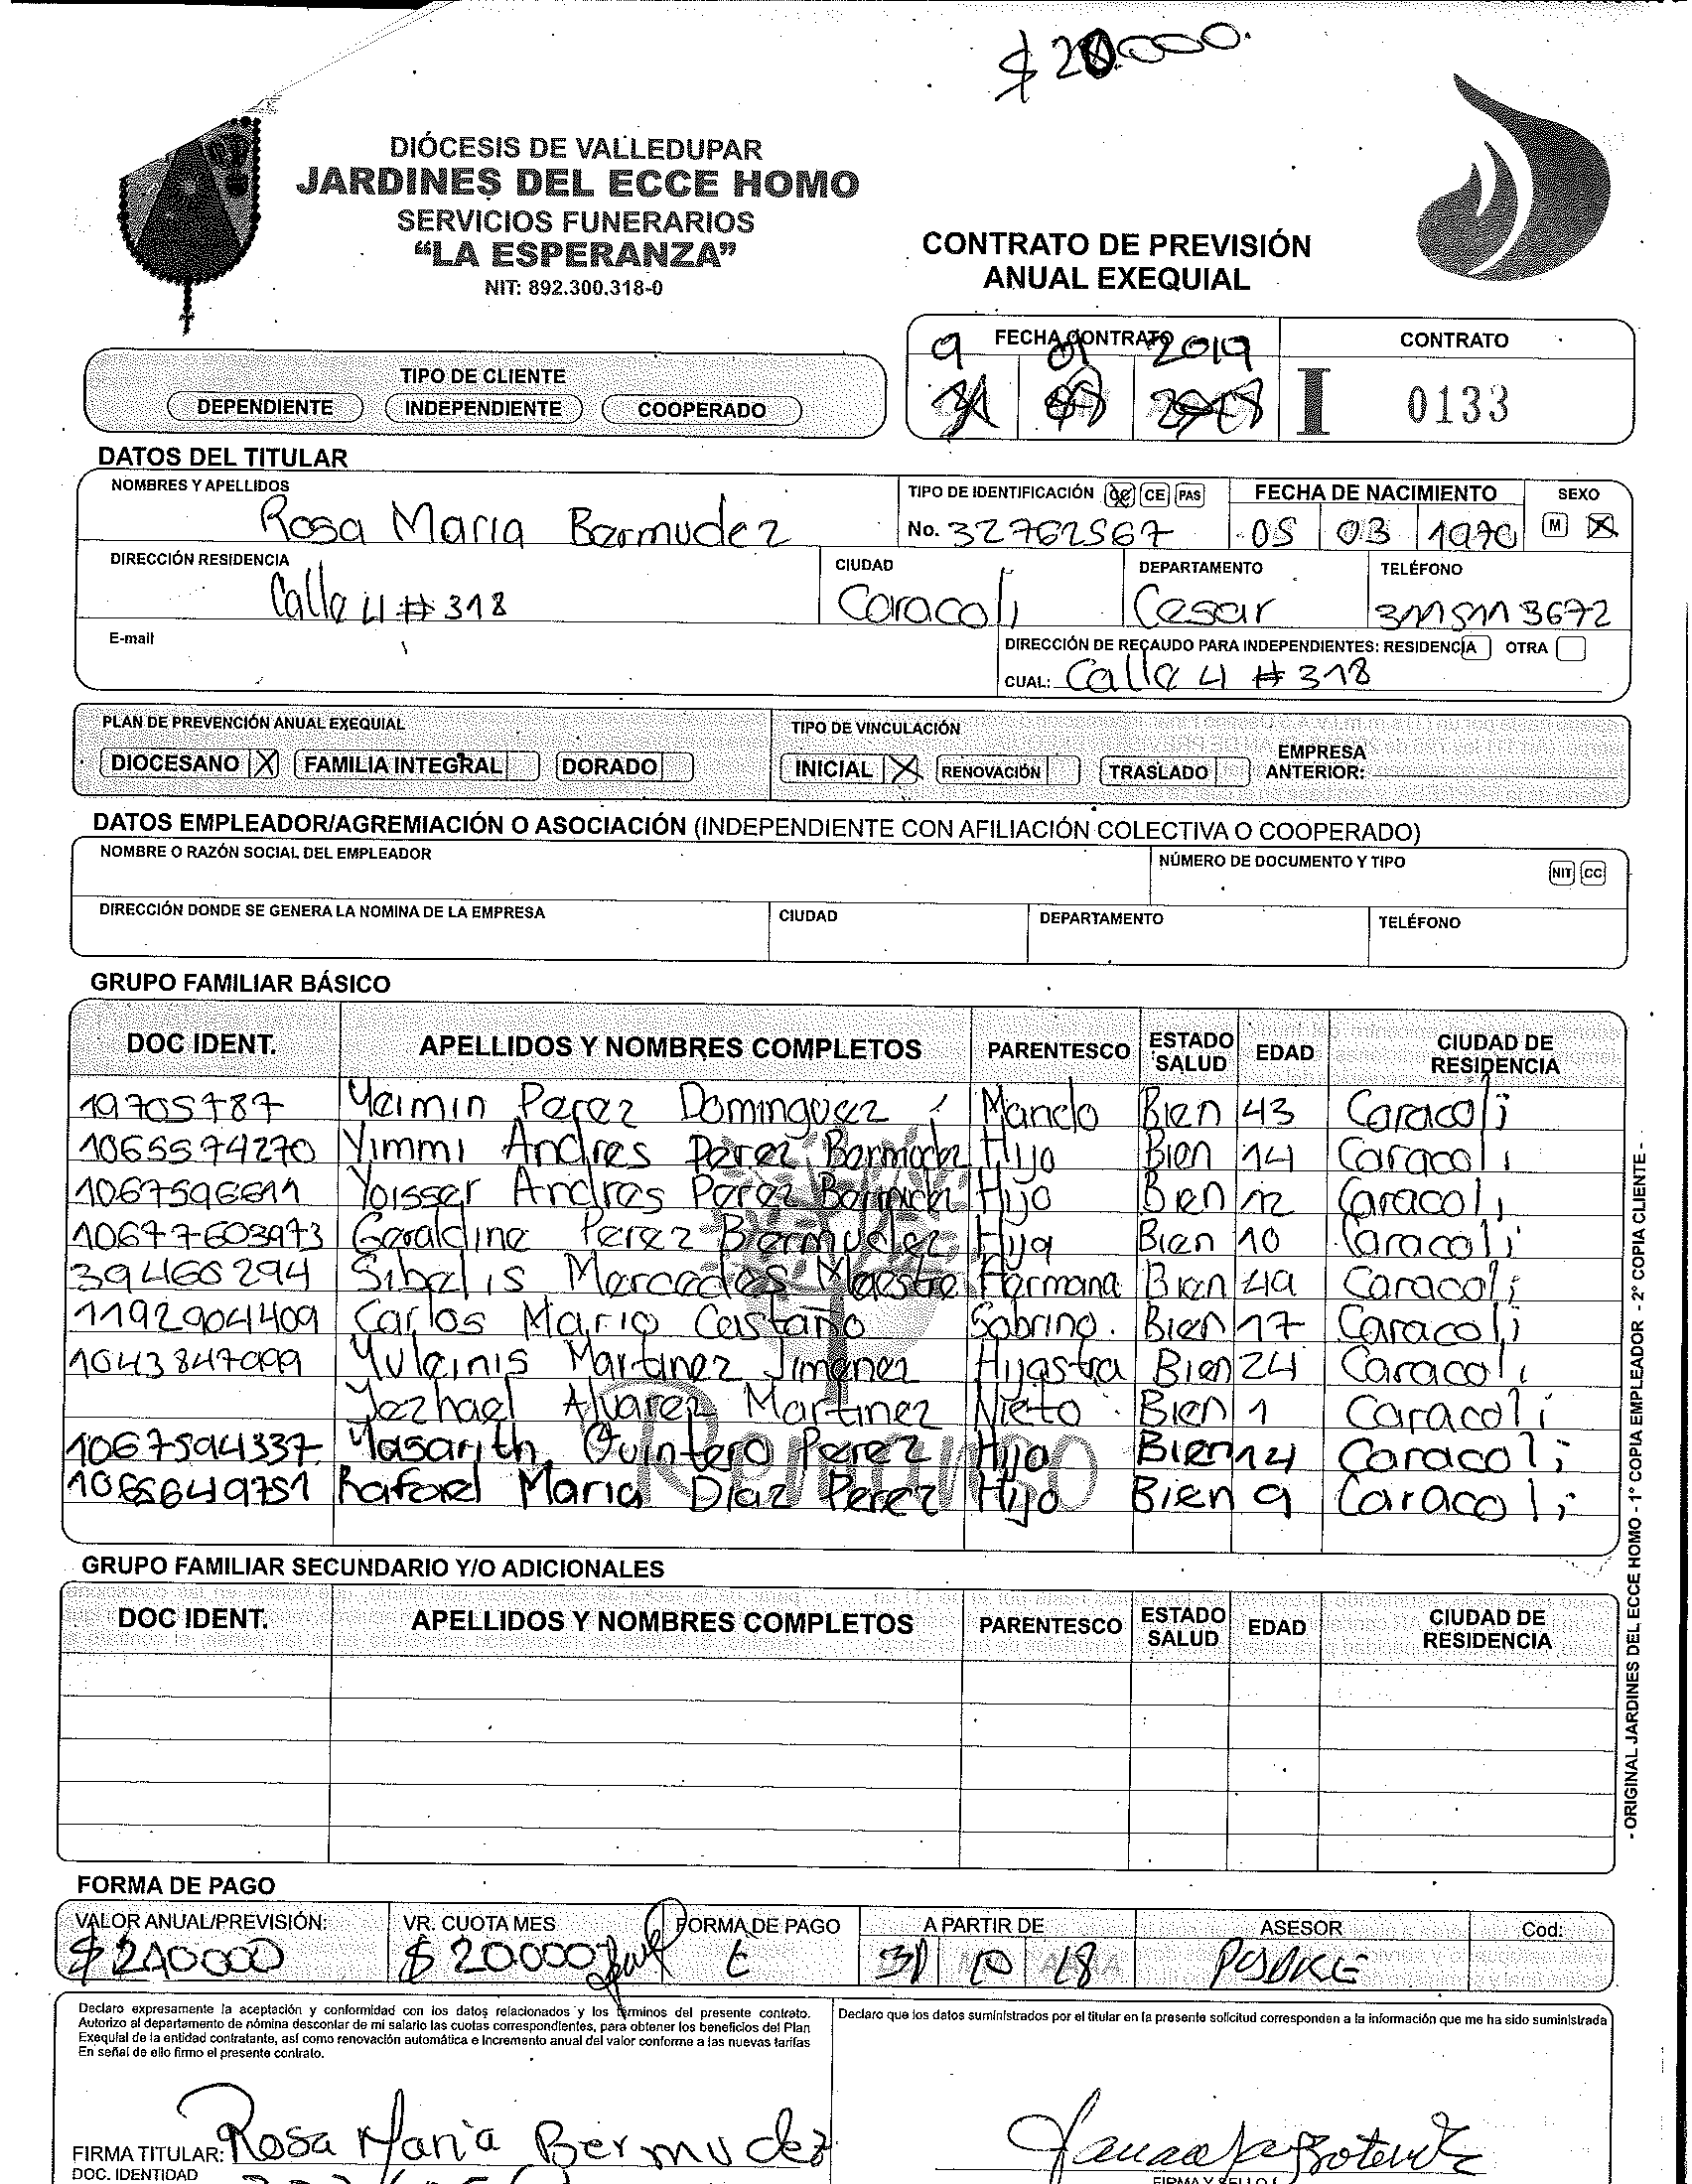 $ 20.000.
DIÓCESIS DE VALLEDUPAR
JARDINES DEL ECCE HOMO
SERVICIOS FUNERARIOS
“LA ESPERANZA”
NIT: 892.300.318-0
CONTRATO DE PREVISIÓN
ANUAL EXEQUIAL
TIPO DE CLIENTE
DEPENDIENTE INDEPENDIENTE COOPERADO
FECHA CONTRATO CONTRATO
9 01 2019
31 2018 I 0133
DATOS DEL TITULAR
NOMBRES Y APELLIDOS TIPO DE IDENTIFICACIÓN CE PAS FECHA DE NACIMIENTO SEXO
Rosa Maria Bermudez No. 32762567 05 03 1970 M X
DIRECCIÓN RESIDENCIA CIUDAD DEPARTAMENTO TELÉFONO
Calle 4 # 318 Caracoli Cesar 3115113672
E-mail DIRECCIÓN DE RECAUDO PARA INDEPENDIENTES: RESIDENCIA OTRA
CUAL: Calle 4 # 318
PLAN DE PREVENCIÓN ANUAL EXEQUIAL TIPO DE VINCULACIÓN
DIOCESANO X FAMILIA INTEGRAL DORADO INICIAL X RENOVACIÓN TRASLADO EMPRESA ANTERIOR:
DATOS EMPLEADOR/AGREMIACIÓN O ASOCIACIÓN (INDEPENDIENTE CON AFILIACIÓN COLECTIVA O COOPERADO)
NOMBRE O RAZÓN SOCIAL DEL EMPLEADOR NÚMERO DE DOCUMENTO Y TIPO NIT CC
DIRECCIÓN DONDE SE GENERA LA NOMINA DE LA EMPRESA CIUDAD DEPARTAMENTO TELÉFONO
GRUPO FAMILIAR BÁSICO
DOC IDENT. APELLIDOS Y NOMBRES COMPLETOS PARENTESCO ESTADO SALUD EDAD CIUDAD DE RESIDENCIA
19705787 Yeimin Perez Dominguez Marido Bien 43 Caracoli
1065574270 Yimmi Andres Perez Bermudez Hijo Bien 14 Caracoli
1067596611 Yoisser Andres Perez Bermudez Hijo Bien 12 Caracoli
10677603973 Geraldine Perez Bermudez Hija Bien 10 Caracoli
39466294 Sibelis Mercedes Maestre Hermana Bien 49 Caracoli
1192904409 Carlos Mario Castaño Sobrino. Bien 17 Caracoli
1043847099 Yuleinis Martinez Jimenez Hijastra Bien 24 Caracoli
Jezhael Alvarez Martinez Nieto Bien 1 Caracoli
1067594337 Yasarith Quintero Perez Hija Bien 14 Caracoli
1065649751 Rafael Maria Diaz Perez Hijo Bien 9 Caracoli
GRUPO FAMILIAR SECUNDARIO Y/O ADICIONALES
DOC IDENT. APELLIDOS Y NOMBRES COMPLETOS PARENTESCO ESTADO SALUD EDAD CIUDAD DE RESIDENCIA
- ORIGINAL JARDINES DEL ECCE HOMO - 1° COPIA EMPLEADOR - 2° COPIA CLIENTE -
FORMA DE PAGO
VALOR ANUAL/PREVISIÓN: VR. CUOTA MES FORMA DE PAGO A PARTIR DE ASESOR Cod:
$ 240000 $ 20000 E 31 10 18
Declaro expresamente la aceptación y conformidad con los datos relacionados y los términos del presente contrato.
Autorizo al departamento de nómina descontar de mi salario las cuotas correspondientes, para obtener los beneficios del Plan
Exequial de la entidad contratante, así como renovación automática e incremento anual del valor conforme a las nuevas tarifas
En señal de ello firmo el presente contrato.
Declaro que los datos suministrados por el titular en la presente solicitud corresponden a la información que me ha sido suministrada
FIRMA TITULAR: Rosa Maria Bermudez
DOC. IDENTIDAD